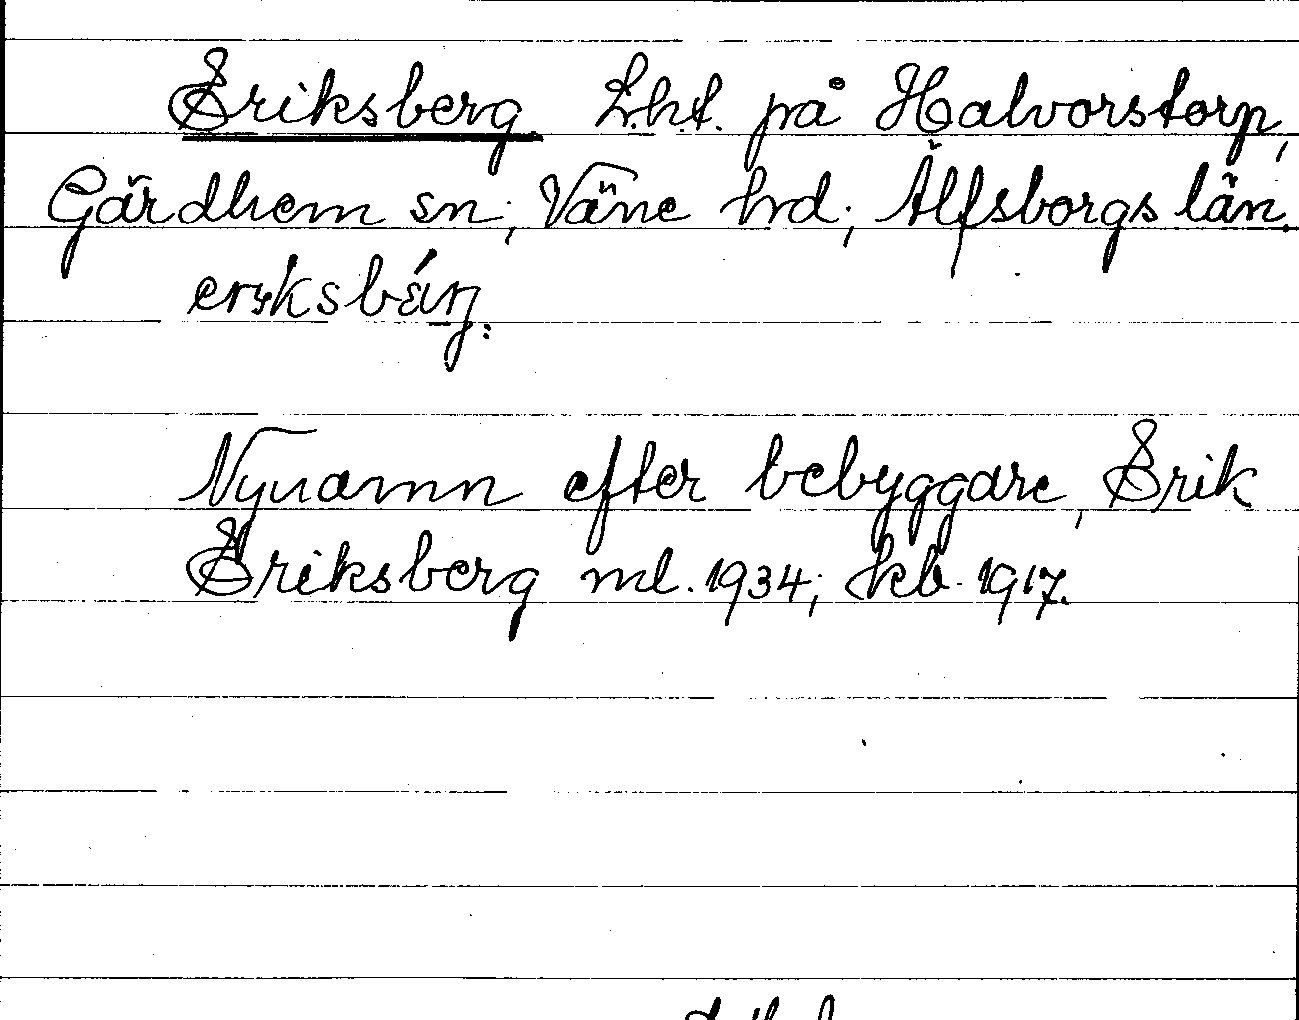 Eriksberg L.h.t. på Halvorstorp,
Gärdhem sn; Väne hd; Älfsborgs län.
Nynamn efter bebyggare, Erik
Eriksberg ml. 1934; kb. 1917.